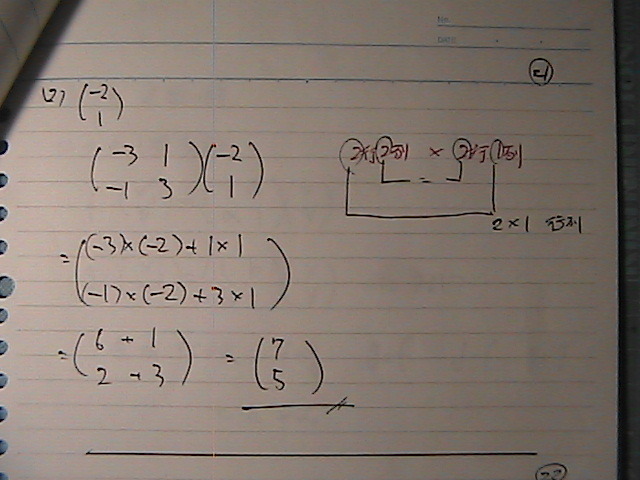 No.
DATE
21
(2) (-2
1)
(-3 1
-1 3)(-2
1)
2行2列 × 2行1列
=
2×1 行列
= ((-3)×(-2)+1×1
(-1)×(-2)+3×1)
= (6 + 1
2 + 3) = (7
5)
22